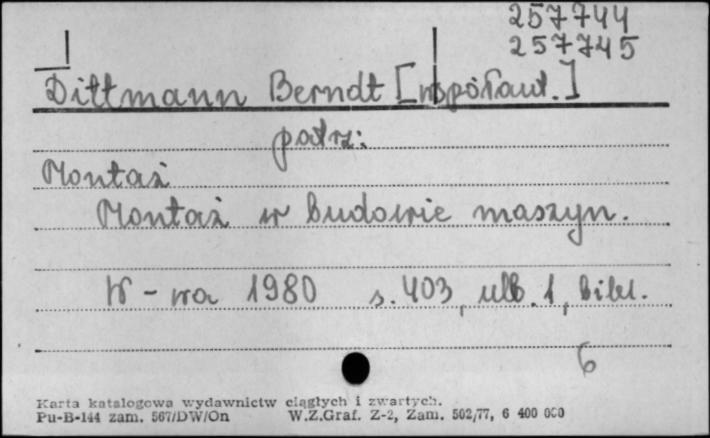 257744
257745
Dittmann Berndt [współaut.]
patrz:
Montaż
Montaż w budowie maszyn.
W-wa 1980 s. 403, nlb. 1, bibl.
6
Karta katalogowa wydawnictw ciągłych i zwartych.
Pu-B-144 zam. 567/DW/On W.Z.Graf. Z-2, Zam. 502/77, 6 400 000